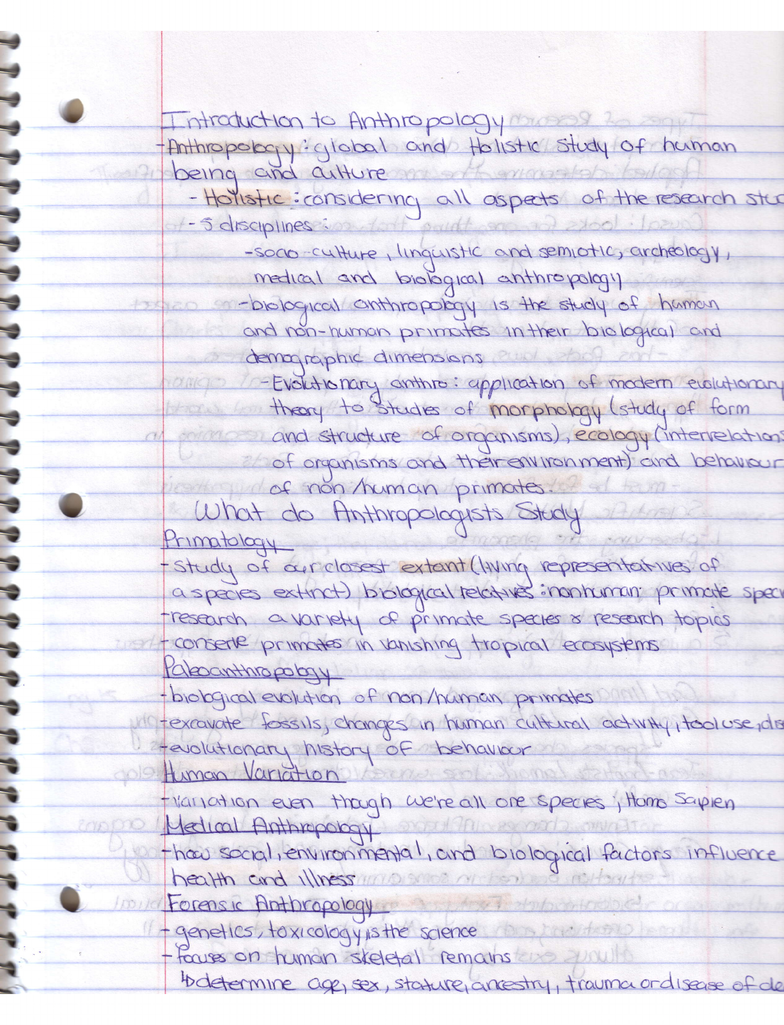 Introduction to Anthropology
-Anthropology: global and Holistic study of human
being and culture
- Holistic: considering all aspects of the research
- 5 disciplines:
-socio-culture, linguistic and semiotic, archeology,
medical and biological anthropology
-biological anthropology is the study of human
and non-human primates in their biological and
demographic dimensions
-Evolutionary anthro: application of modern evolutionary
theory to studies of morphology (study of form
and structure of organisms), ecology (interrelations
of organisms and their environment) and behaviour
of non/human primates.
What do Anthropologists Study
Primatology
-study of our closest extant (living representatives of
a species extinct) biological relatives: nonhuman primate
-research a variety of primate species & research topics
-conserve primates in vanishing tropical ecosystems
Paleoanthropology
-biological evolution of non/human primates
-excavate fossils, changes in human cultural activity, tool use,
-evolutionary history of behaviour
Human Variation
-variation even though we're all one species, Homo Sapien
Medical Anthropology
-how social, environmental, and biological factors influence
health and illness
Forensic Anthropology
- genetics, toxicology, is the science
- focuses on human skeletal remains
↳ determine age, sex, stature, ancestry, trauma or disease of